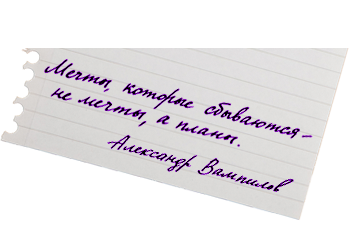 Мечты, которые сбываются –
не мечты, а планы.
Александр Вампилов